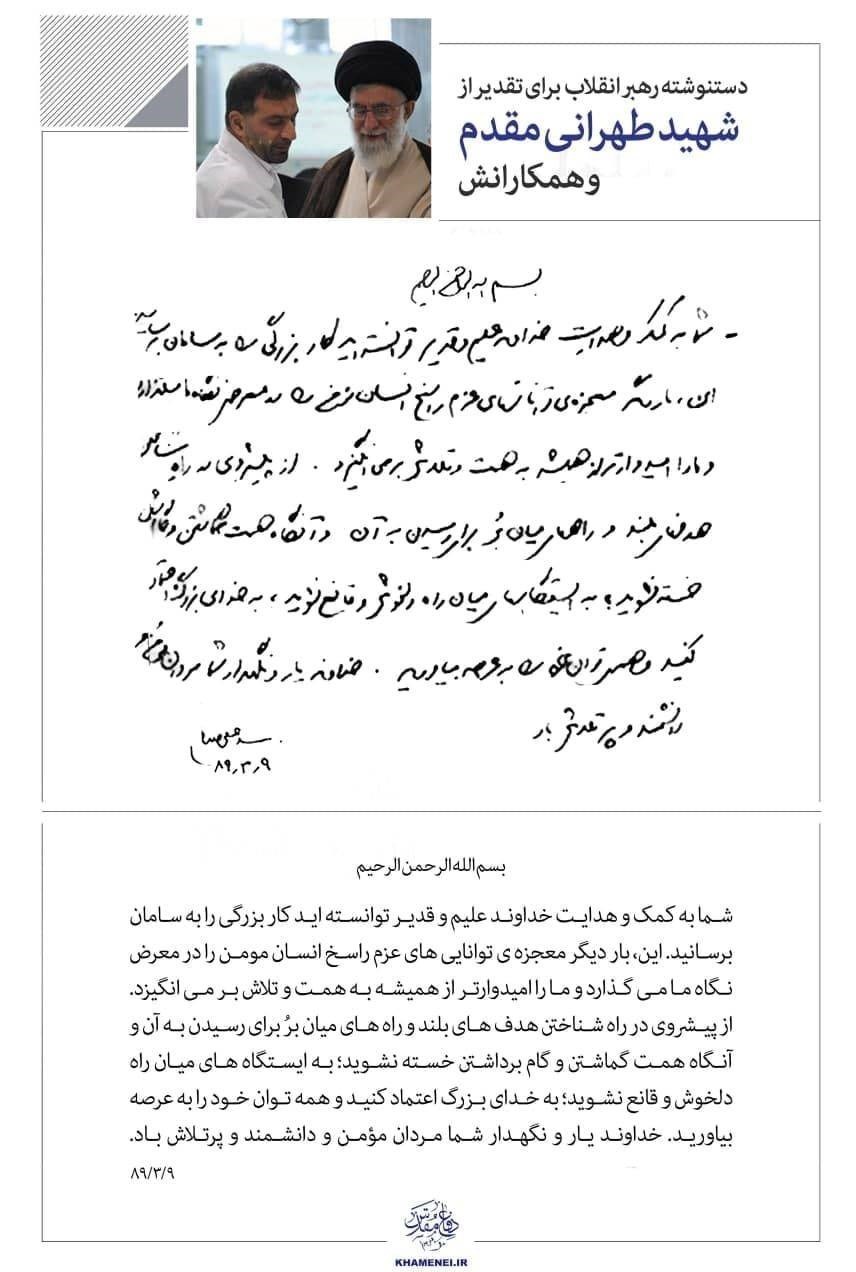 دستنوشته رهبر انقلاب برای تقدیر از
شهید طهرانی مقدم
و همکارانش
بسم الله الرحمن الرحیم
- شما به کمک و هدایت خداوند علیم و قدیر توانسته اید کار بزرگی را به سامان برسانید
این، بار دیگر معجزه‌ی توانائیهای عزم راسخ انسان مومن را در معرض نگاه ما میگذارد
و ما را امیدوارتر از همیشه به همت و تلاش برمی انگیزد. از پیشروی در راه شناختن
هدفهای بلند و راههای میان بُر برای رسیدن به آن و آنگاه همت گماشتن و گام برداشتن
خسته نشوید؛ به ایستگاههای میان راه دلخوش و قانع نشوید، به خدای بزرگ اعتماد
کنید و همه‌ی توان خود را به عرصه بیاورید. خداوند یار و نگهدار شما مردان مؤمن و
دانشمند و پر تلاش باد
سید علی خامنه‌ای
۸۹,۳,۹
بسم الله الرحمن الرحیم
شما به کمک و هدایت خداوند علیم و قدیر توانسته اید کار بزرگی را به سامان
برسانید. این، بار دیگر معجزه ی توانایی های عزم راسخ انسان مومن را در معرض
نگاه ما می گذارد و ما را امیدوارتر از همیشه به همت و تلاش بر می انگیزد.
از پیشروی در راه شناختن هدف های بلند و راه های میان بُر برای رسیدن به آن و
آنگاه همت گماشتن و گام برداشتن خسته نشوید؛ به ایستگاه های میان راه
دلخوش و قانع نشوید؛ به خدای بزرگ اعتماد کنید و همه توان خود را به عرصه
بیاورید. خداوند یار و نگهدار شما مردان مؤمن و دانشمند و پرتلاش باد.
۸۹/۳/۹
دفاع مقدس
KHAMENEI.IR